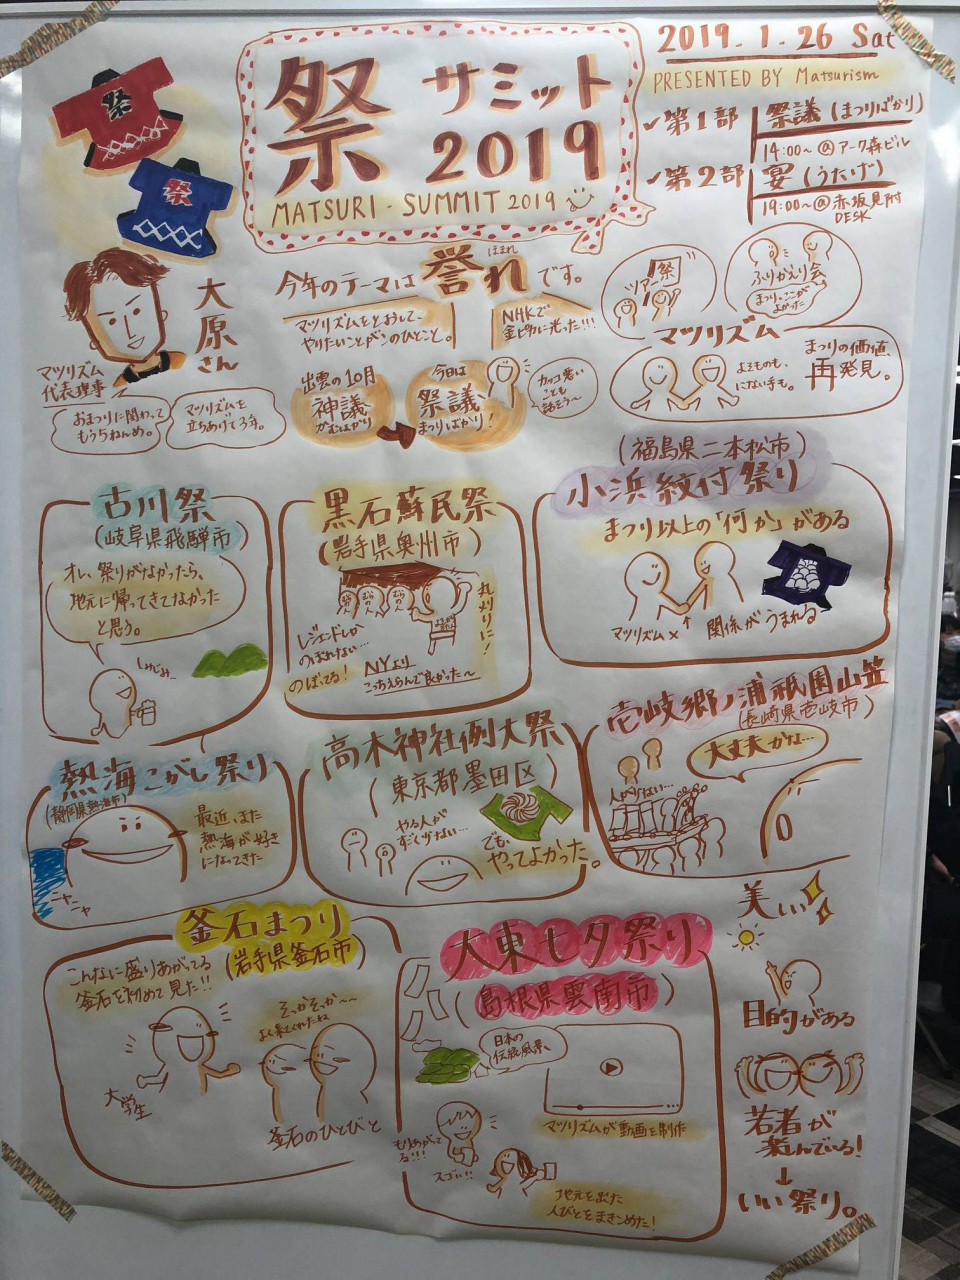 祭
祭
祭 サミット
2019
MATSURI-SUMMIT 2019
2019.1.26 Sat
PRESENTED BY Matsurism
✓第1部 祭議(まつりばかり)
14:00~@アーク森ビル
✓第2部 宴(うたげ)
19:00~@赤坂見附
DESK
大原さん
マツリズム
代表理事
おまつりに関わって
もうちねんめ。
マツリズムを
立ちあげて3年。
今年のテーマは誉れです。
ほまれ
マツリズムをとおして
やりたいことがこのひとこと。
NHKで
金ピカに光った!!!
出雲の10月
神議
かむはかり
今日は
祭議
まつりばかり!
カッコ悪い
ことも
話そう~
ツアー祭
ふりかえり会
まつりのここが
よかった
マツリズム
よそものも、
にない手も。
まつりの価値、
再発見。
古川祭
(岐阜県飛騨市)
オレ、祭りがなかったら、
地元に帰ってきてなかった
と思う。
しみじみ…
黒石蘇民祭
(岩手県奥州市)
レジェンドしか
のぼれない…
のぼってる!
丸刈りに!
NYより
こっちえらんで良かった~
(福島県二本松市)
小浜紋付祭り
まつり以上の「何か」がある
マツリズム×
関係がうまれる
熱海こがし祭り
(静岡県熱海市)
最近、また
熱海が好き
になってきた
ニヤニヤ
高木神社例大祭
(東京都墨田区)
やる人が
すごく少ない…
でも、
やってよかった。
壱岐郷ノ浦祇園山笠
(長崎県壱岐市)
大丈夫かな…
人が少ない…
釜石まつり
(岩手県釜石市)
こんなに盛りあがってる
釜石を初めて見た!!
そっかそっか~~
よく来てくれたね
大学生
釜石のひとびと
大東七夕祭り
(島根県雲南市)
日本の
伝統風景、
マツリズムが動画を制作
もりあがって
る!!!
スゴい!!
地元を出た
人びとをまきこめた!
美しい
目的がある
若者が
楽しんでいる!
↓
いい祭り。